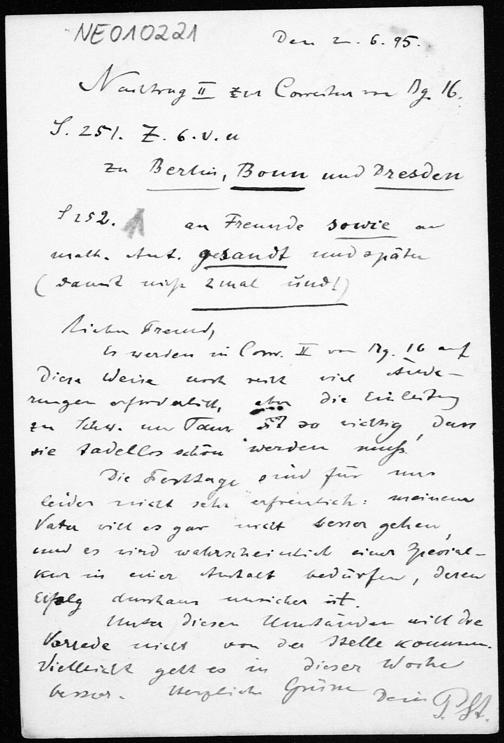 NE010221
Den 2. 6. 95.
Nachtrag II zur Correctur von Bg. 16.
S. 251. Z. 6. v. u
zu Berlin, Bonn und Dresden
S 252. 1 an Freunde sowie an
math. Inst. gesandt und später
(damit nicht 2 mal und!)
Lieber Freund,
Es werden in Corr. II von Bg. 16 auf
diese Weise noch recht viel Ände-
rungen erforderlich, aber die Einleitung
zu Schw. und Taur. ist so wichtig, dass
sie tadellos schön werden muss.
Die Festtage sind für uns
leider nicht sehr erfreulich: meinem
Vater will es gar nicht besser gehen,
und es wird wahrscheinlich einer Spezial-
kur in einer Anstalt bedürfen, deren
Erfolg durchaus unsicher ist.
Unter diesen Umständen will die
Vorrede nicht von der Stelle kommen.
Vielleicht geht es in dieser Woche
besser. Herzliche Grüsse
Dein P. St.